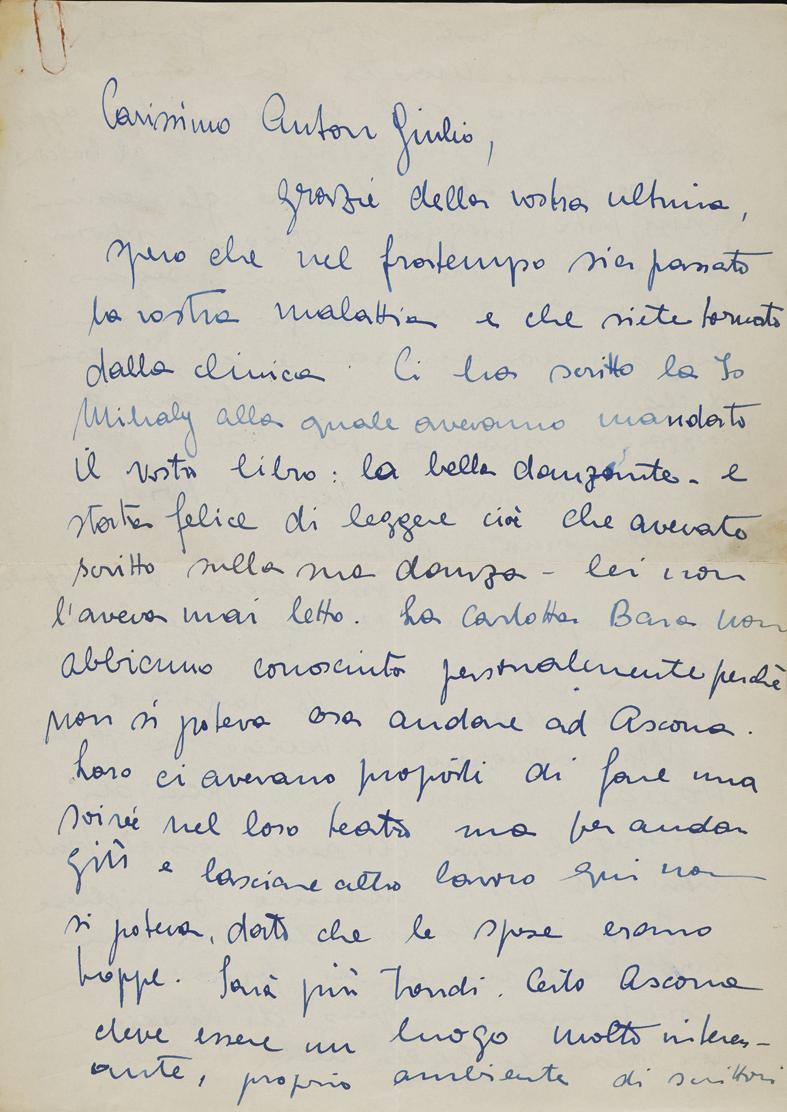 Carissimo Anton Giulio,
grazie della vostra ultima,
spero che nel frattempo sia passato
la vostra malattia e che siete tornato
dalla clinica. Ci ha scritto la Jo
Mihaly alla quale avevamo mandato
il vostro libro: la bella danzante - e
stata felice di leggere ciò che avevato
scritto sulla sua danza - lei non
l'aveva mai letto. La Carlotta Bara non
abbiamo conosciuto personalemente perchè
non si poteva ora andare ad Ascona.
Loro ci avevano proposti di fare una
soireé nel loro teatro ma per andar
giù e lasciare altro lavoro qui non
si poteva, dato che le spese erano
troppe. Sarà più tardi. Certo Ascona
deve essere un luogo molto interes-
ante, proprio ambiente di scrittori